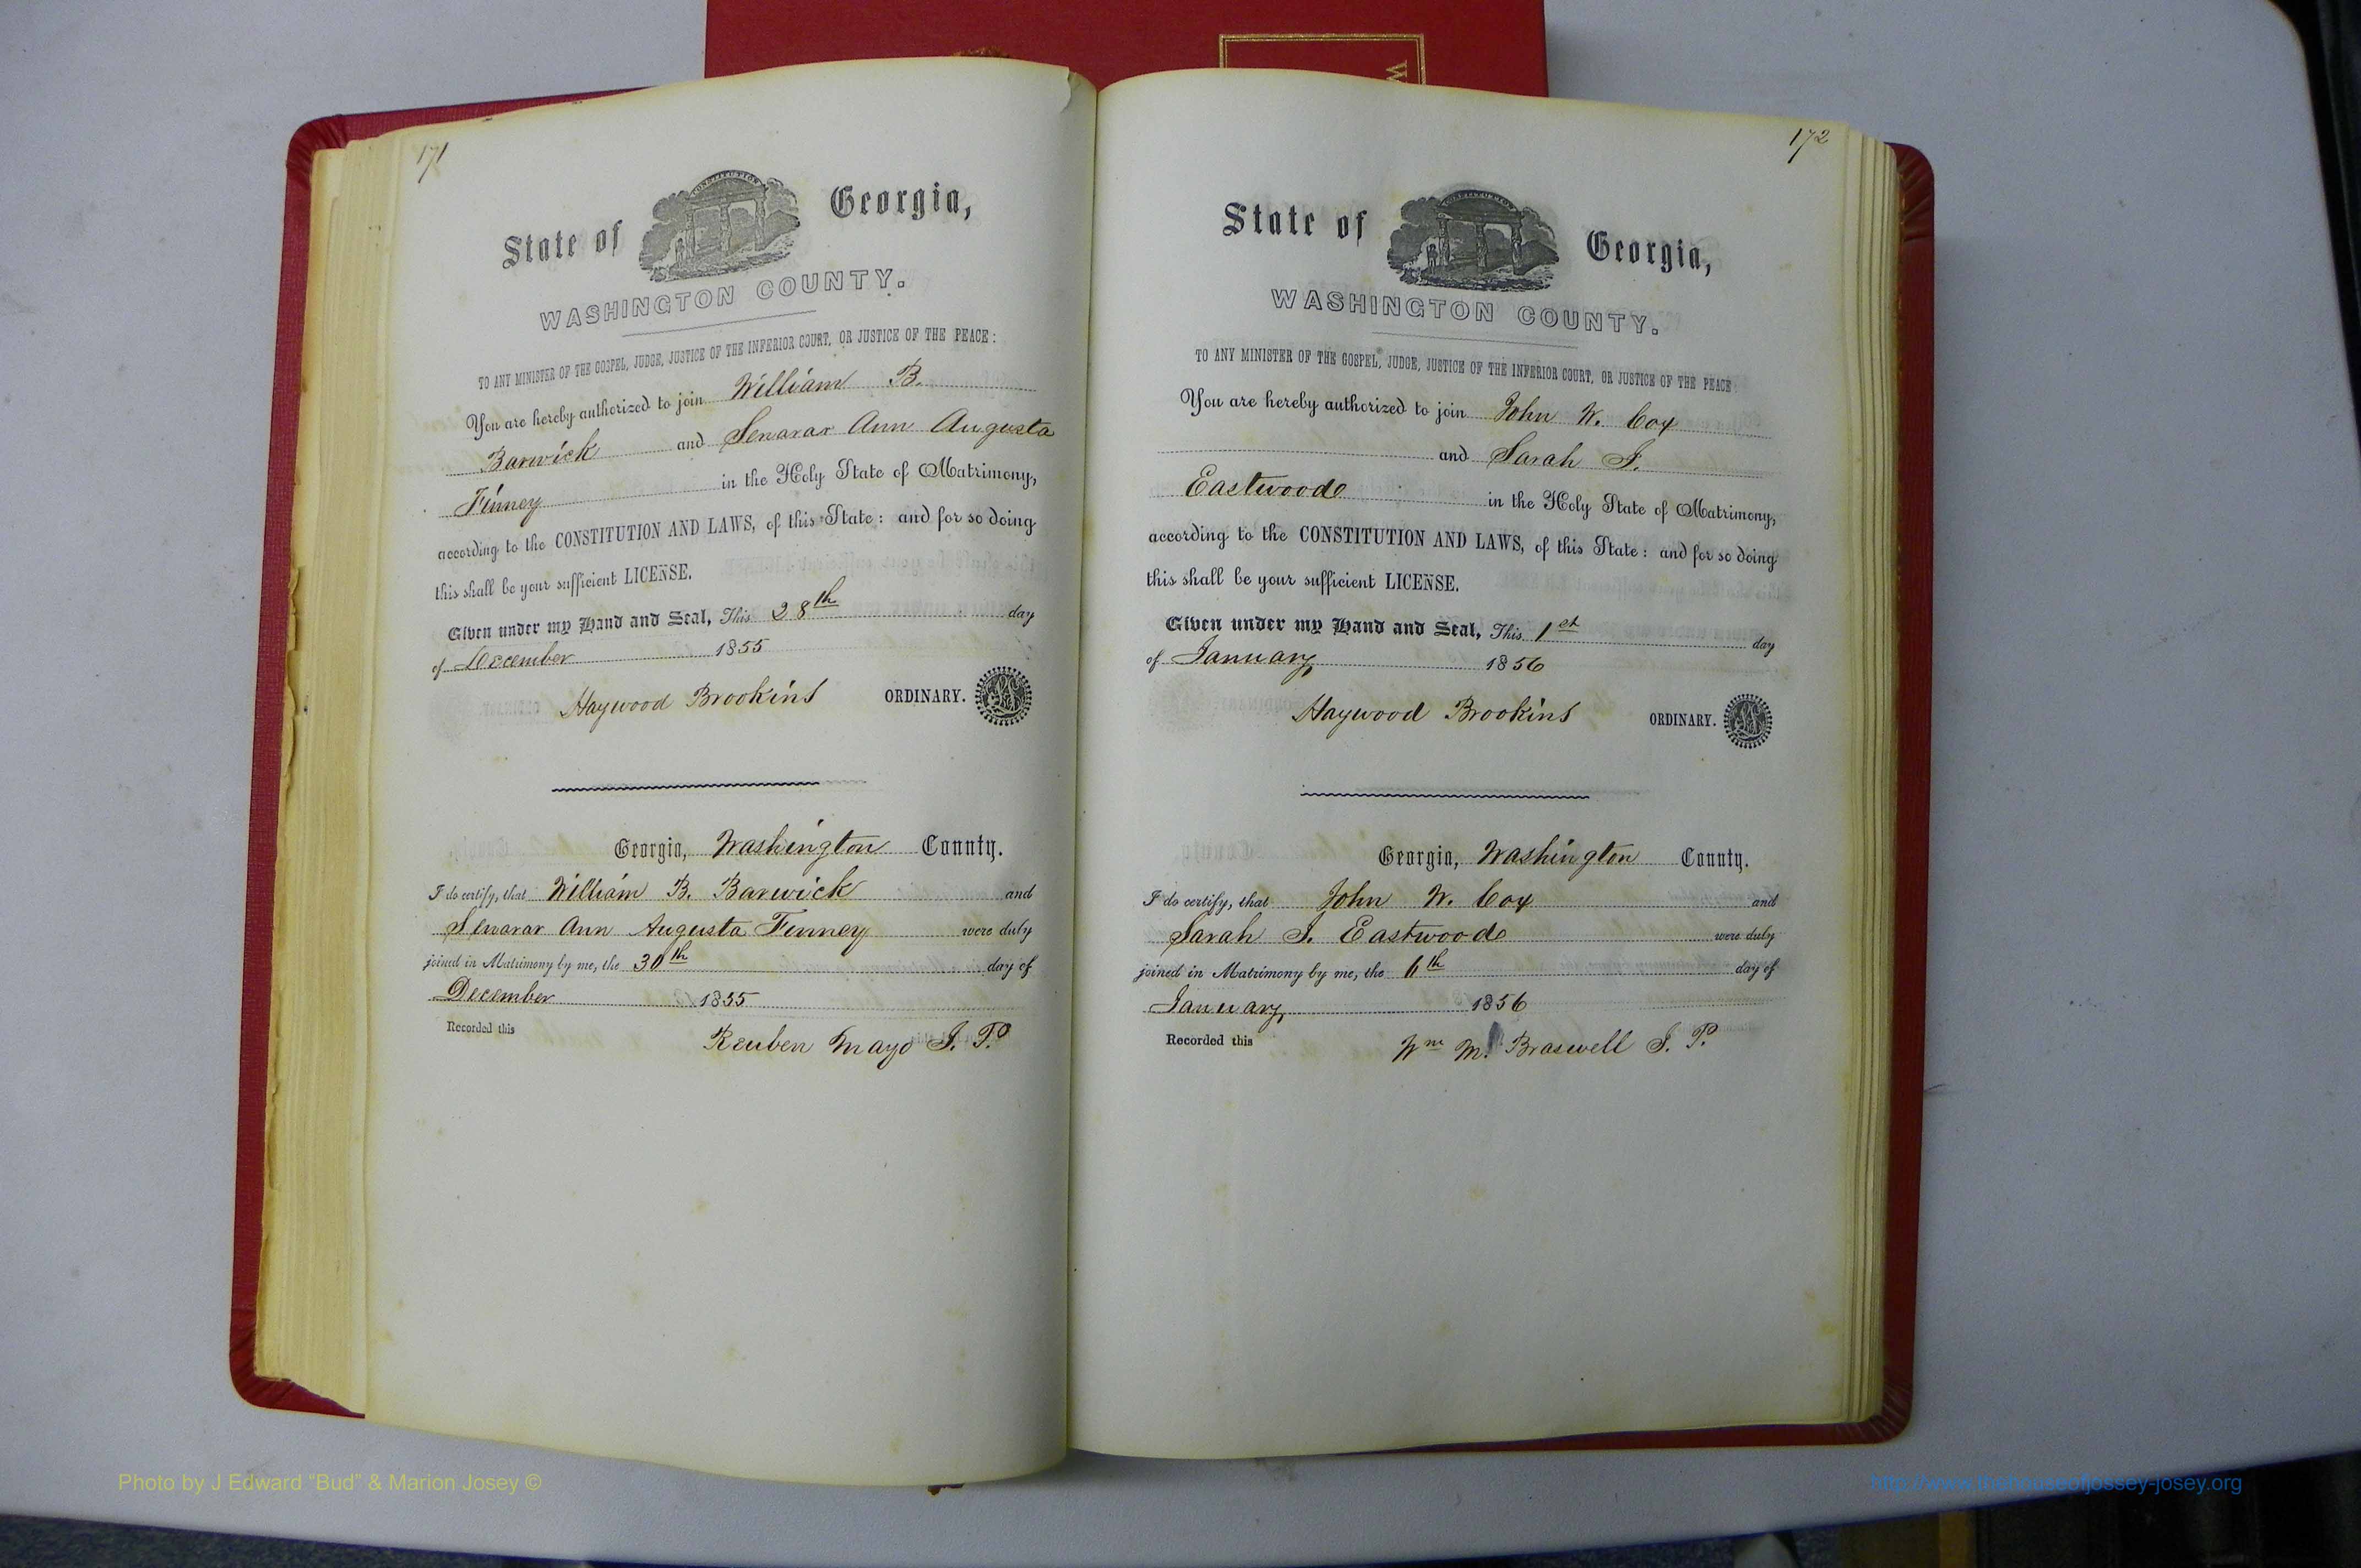 171
CONSTITUTION
State of Georgia,
WASHINGTON COUNTY.
TO ANY MINISTER OF THE GOSPEL, JUDGE, JUSTICE OF THE INFERIOR COURT, OR JUSTICE OF THE PEACE:
You are hereby authorized to join William B.
Barwick and Senavar Ann Augusta
Finney in the Holy State of Matrimony,
according to the CONSTITUTION AND LAWS, of this State: and for so doing
this shall be your sufficient LICENSE.
Given under my Hand and Seal, This 28th day
of December 1855
Haywood Brookins ORDINARY.
Georgia, Washington County.
I do certify, that William B. Barwick and
Senavar Ann Augusta Finney were duly
joined in Matrimony by me, the 30th day of
December 1855
Recorded this
Reuben Mayo J. P.
172
CONSTITUTION
State of Georgia,
WASHINGTON COUNTY.
TO ANY MINISTER OF THE GOSPEL, JUDGE, JUSTICE OF THE INFERIOR COURT, OR JUSTICE OF THE PEACE
You are hereby authorized to join John W. Cox
and Sarah J.
Eastwood in the Holy State of Matrimony,
according to the CONSTITUTION AND LAWS, of this State: and for so doing
this shall be your sufficient LICENSE.
Given under my Hand and Seal, This 1st day
of January 1856
Haywood Brookins ORDINARY.
Georgia, Washington County.
I do certify, that John W. Cox and
Sarah J. Eastwood were duly
joined in Matrimony by me, the 6th day of
January 1856
Recorded this
Wm M. Braswell J. P.
Photo by J Edward “Bud” & Marion Josey ©
http://www.thehouseofjossey-josey.org